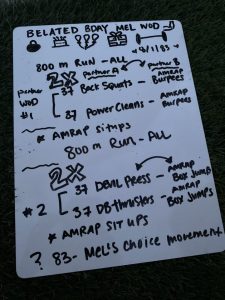 BELATED BDAY MEL WOD
8/1/83
800 m RUN - ALL
2X Partner A Partner B
Partner WOD #1
37 Back Squats - AMRAP Burpees
37 Power Cleans - AMRAP Burpees
* AMRAP situps
800 m RUN - ALL
2X
#2
37 DBall Press - AMRAP Box Jump
37 DB thrusters - AMRAP Box Jumps
* AMRAP SIT UPS
? 83- Mel's Choice movement